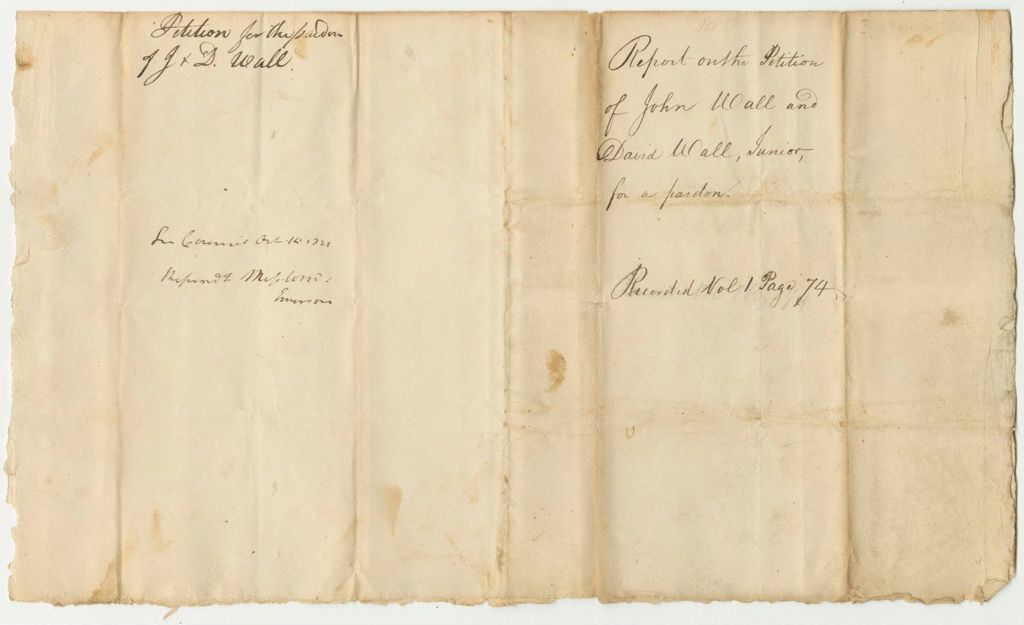 Petition for the pardon
of J & D. Wall.
In Council Oct 1821
Emerson
Report on the Petition
of John Wall and
David Wall, Junior,
for a pardon.
Recorded Vol 1 Page 74